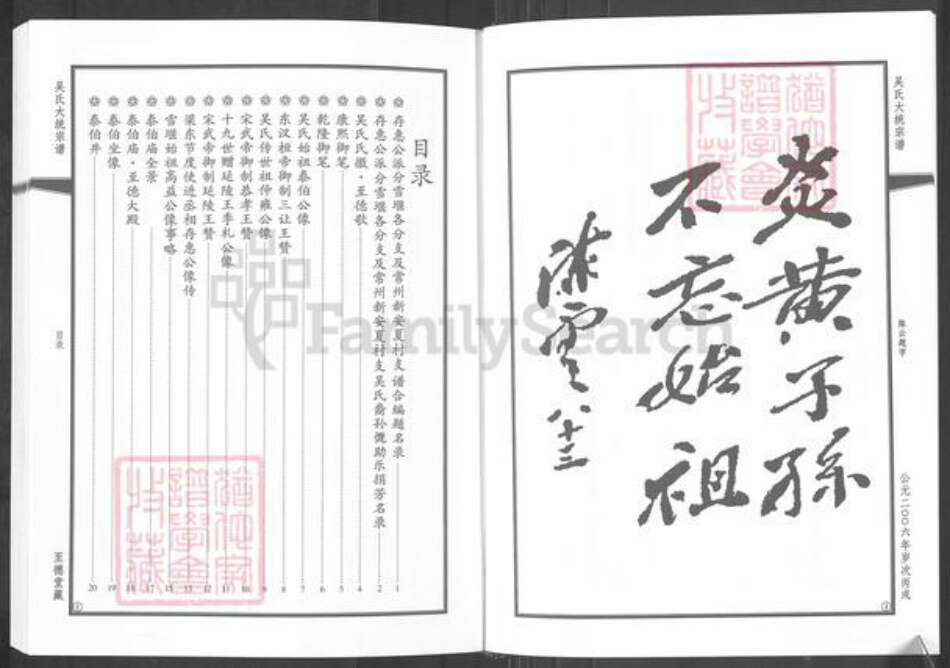 吴氏大统宗谱
陈云题字
公元二〇〇六年岁次丙戌
炎黄子孫
不忘始祖
陈雲 八十三
目录
存惠公派分雪堰各分支及常州新安夏村支谱合编题名录 1
存惠公派分雪堰各分支及常州新安夏村支吴氏裔孙慨助乐捐芳名录 2
吴氏氏徽·至德歌 4
康熙御笔 5
乾隆御笔 6
吴氏始祖泰伯公像 7
东汉桓帝御制三让王赞 8
吴氏传世祖仲雍公像 9
宋武帝御制恭孝王赞 10
十九世赠延陵王季札公像 11
宋武帝御制延陵王赞 12
梁东节度使进丞相存惠公像传 13
雪堰始祖高益公像事略 15
泰伯庙全景 17
泰伯庙·至德大殿 18
泰伯坐像 19
泰伯井 20
吴氏大统宗谱
目录
至德堂藏
FamilySearch